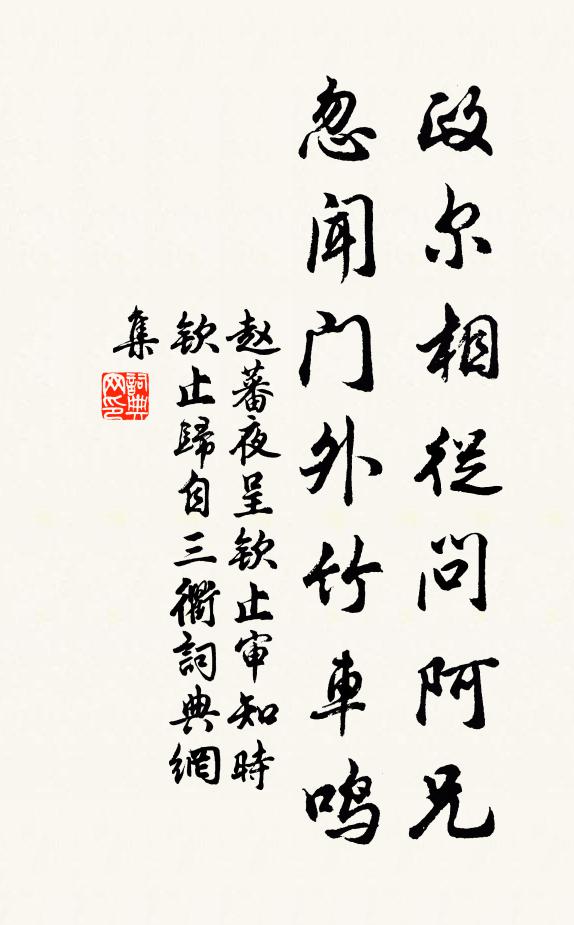 政尔相從问阿兄
忽闻门外竹車鸣
赵蕃夜呈钦止审知時
钦止歸自三衢詞典網
集
詞典
网印